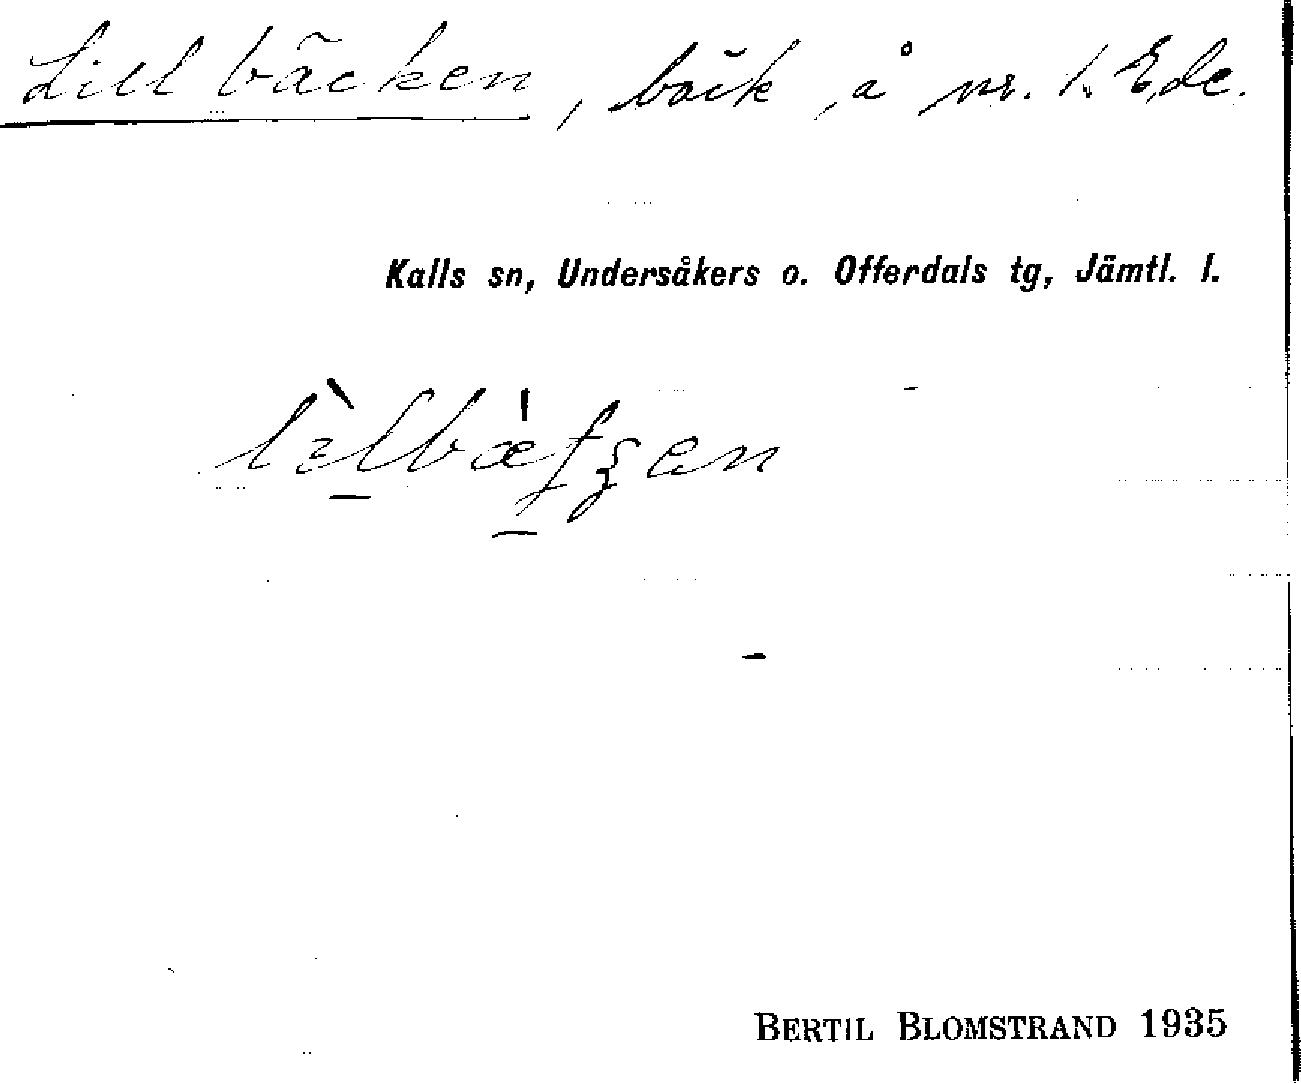 Lillbäcken, bäck, å nr. 1. Ede.
Kalls sn, Undersåkers o. Offerdals tg, Jämtl. l.
BERTIL BLOMSTRAND 1935